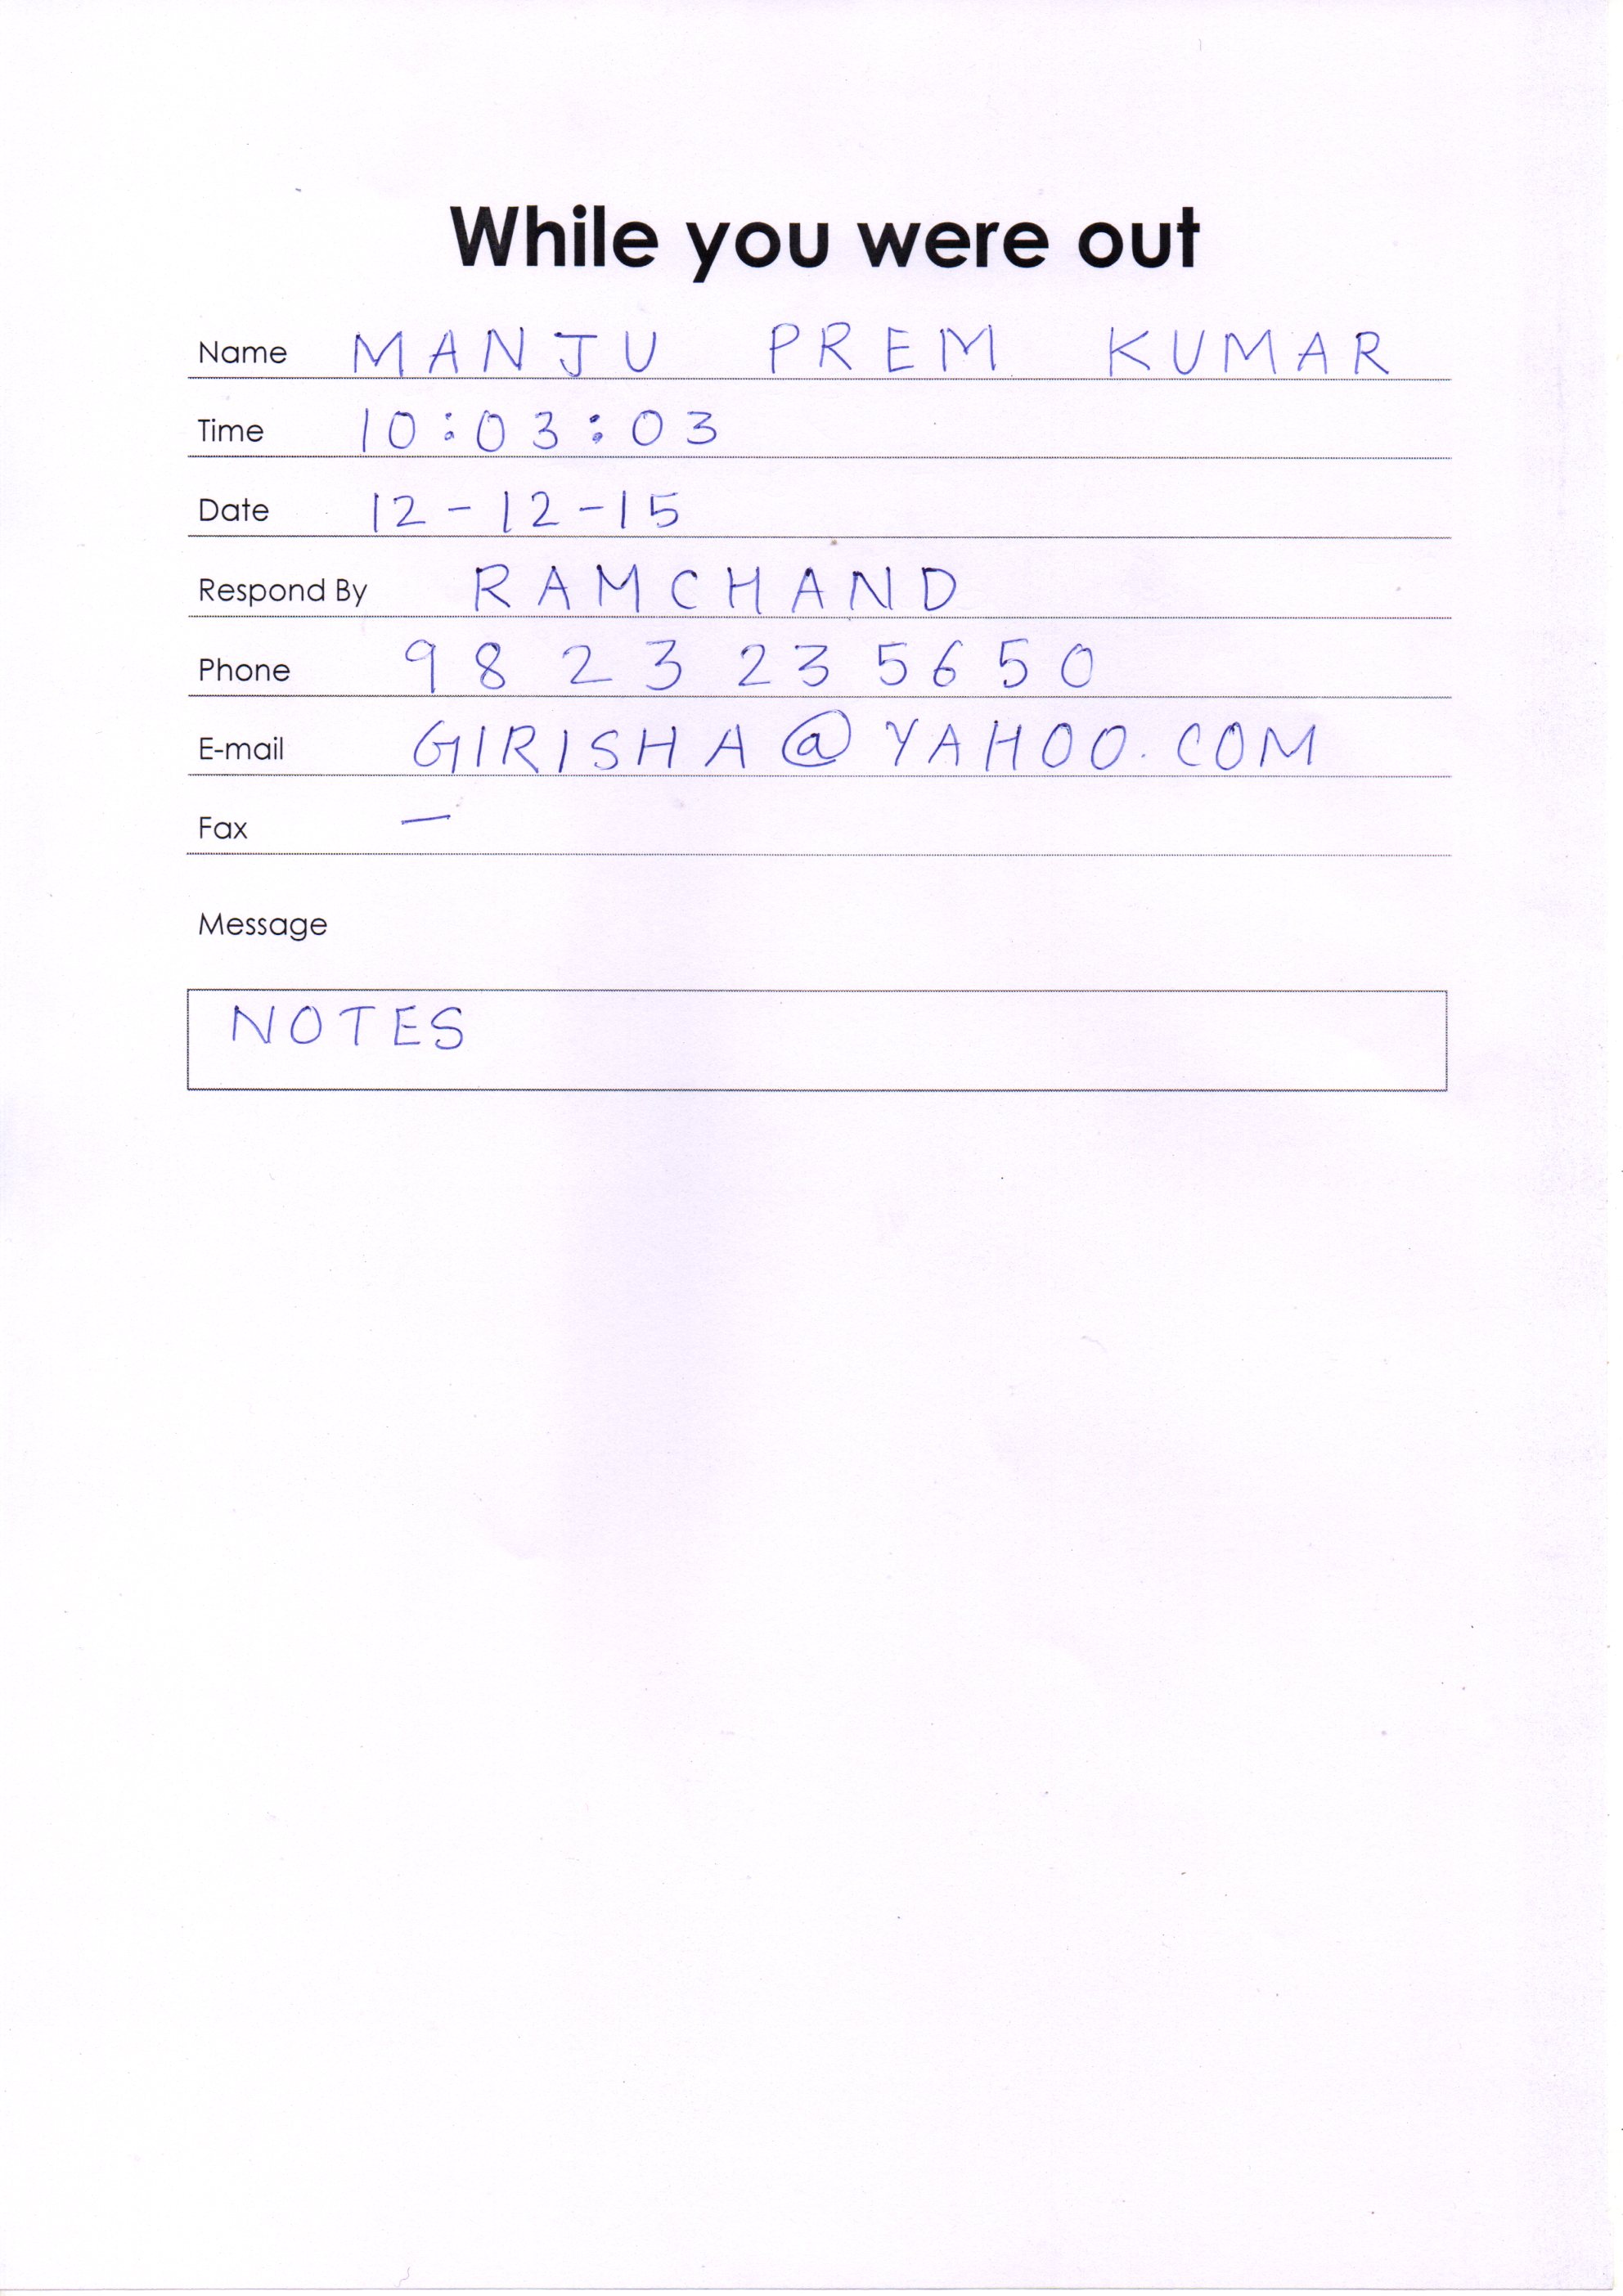 While you were out
Name MANJU PREM KUMAR
Time 10:03:03
Date 12-12-15
Respond By RAMCHAND
Phone 98 23 23 5650
E-mail GIRISHA@YAHOO.COM
Fax —
Message
NOTES